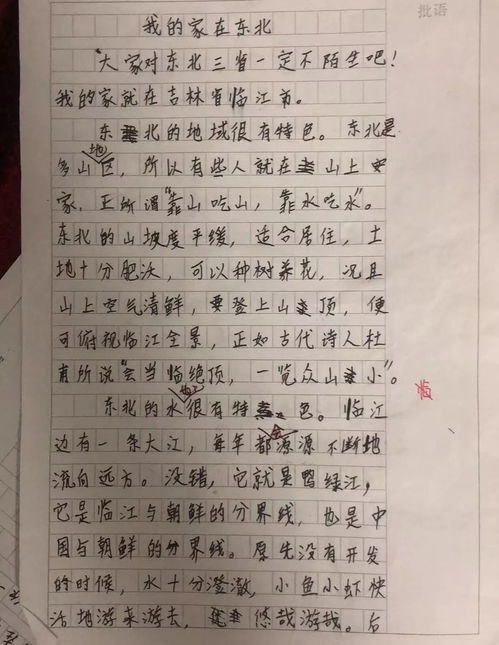 批语
我的家在东北
大家对东北三省一定不陌生吧！
我的家就在吉林省临江市。
东北的地域很有特色。东北是
多山地区，所以有些人就在山上安
家，正所谓“靠山吃山，靠水吃水”。
东北的山坡度平缓，适合居住，土
地十分肥沃，可以种树养花，况且
山上空气清鲜，要登上山顶，便
可俯视临江全景，正如古代诗人杜
甫所说“会当临绝顶，一览众山小”。
临
东北的水很有特色。临江
边有一条大江，每年都会源源不断地
流向远方。没错，它就是鸭绿江，
它是临江与朝鲜的分界线，也是中
国与朝鲜的分界线。原先没有开发
的时候，水十分澄澈，小鱼小虾快
活地游来游去，悠哉游哉。后